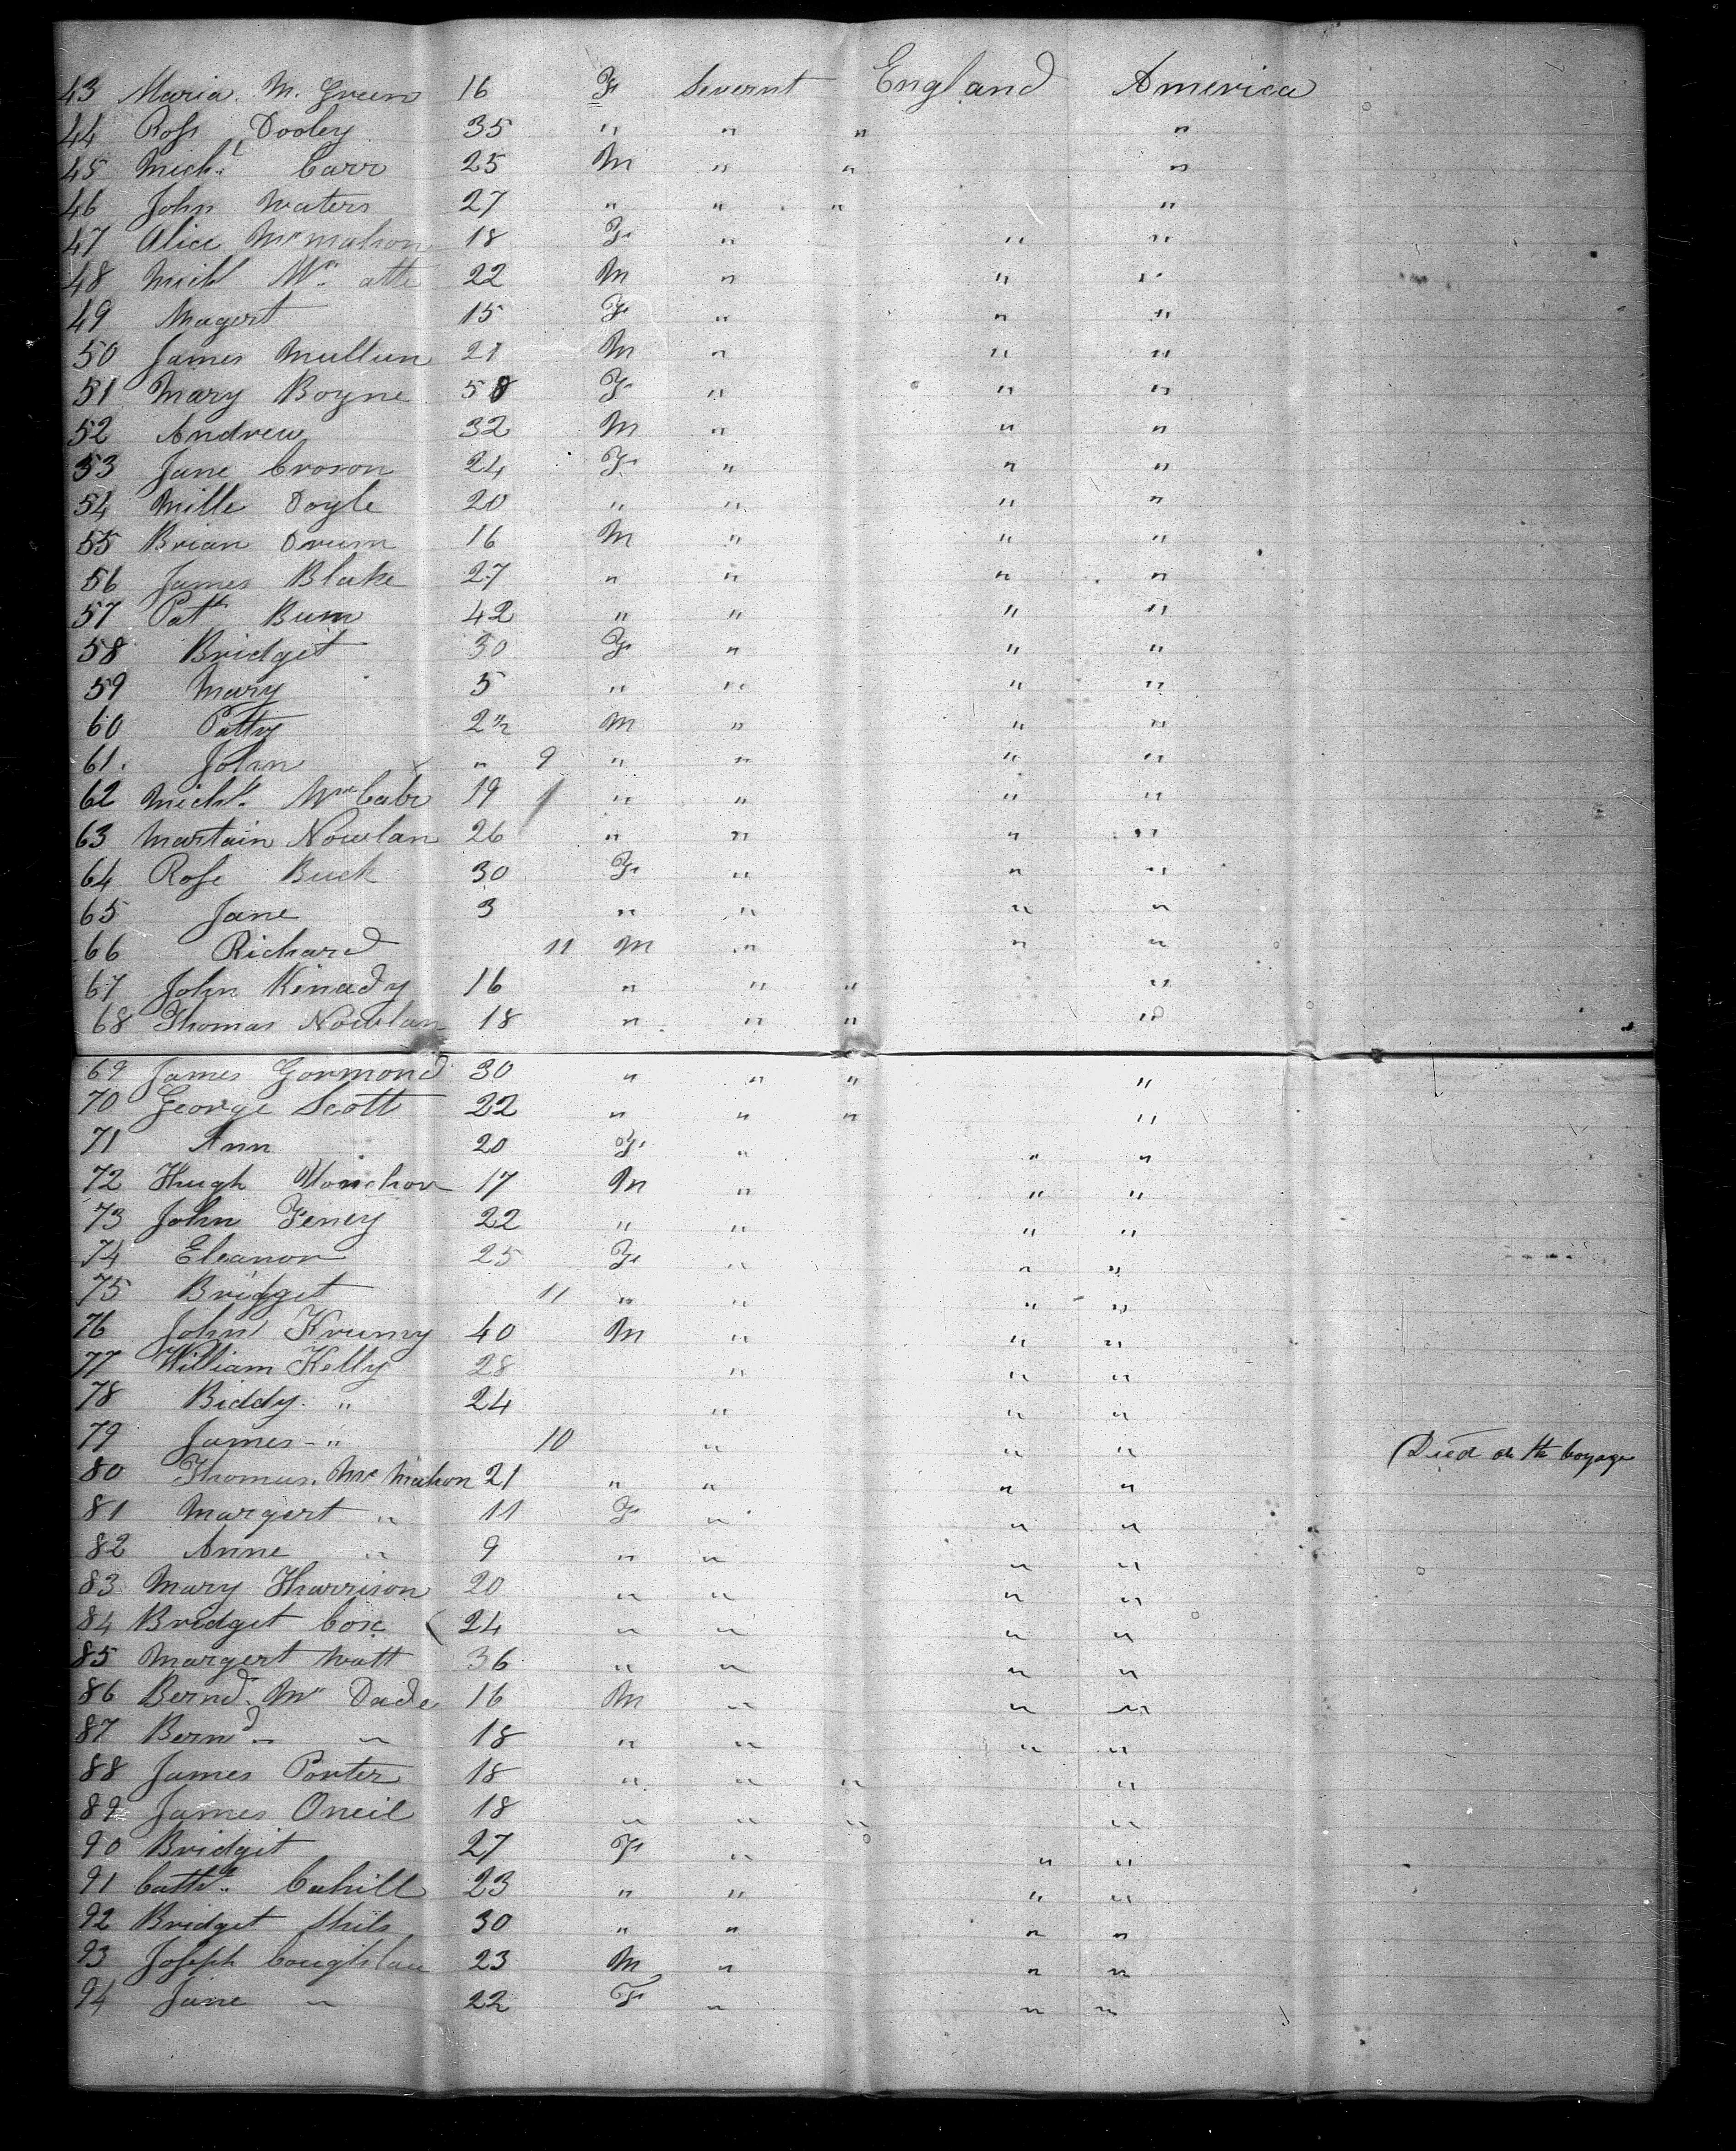 43 Maria M. Green 16 F Severnt England America
44 Rose Dooley 35 " " " "
45 Michl. Carr 25 M " " "
46 John Waters 27 " " " "
47 Alice McMahon 18 F " " "
48 Michl Mc 22 M " " "
49 Magert 15 F " " "
50 James Mullun 21 M " " "
51 Mary Boyne 58 F " " "
52 Andrew 32 M " " "
53 Jane Croson 24 F " " "
54 Mille Doyle 20 " " " "
55 Brian Drum 16 M " " "
56 James Blake 27 " " " "
57 Patk Bum 42 " " " "
58 Bridget 30 F " " "
59 Mary 5 " " " "
60 Patty 2 M " " "
61. John " 9 " " " "
62 Michl. McCabe 19 " " " "
63 Martain Nowlan 26 " " " "
64 Rose Buck 30 F " " "
65 Jane 3 " " " "
66 Richard 11 M " " "
67 John Kinady 16 " " " "
68 Thomas Nowlan 18 " " " "
69 James Gormond 30 " " " "
70 George Scott 22 " " " "
71 Ann 20 F " " "
72 Hugh 17 M " " "
73 John Feney 22 " " " "
74 Eleanor 25 F " " "
75 Bridget 11 " " " "
76 John Krumy 40 M " " "
77 William Kelly 28 " " "
78 Biddy " 24 " " "
79 James - " 10 " " " Died on the voyage
80 Thomas. McMahon 21 " " " "
81 Margert " 11 F " " "
82 Anne " 9 " " " "
83 Mary Harrison 20 " " " "
84 Bridget Cox 24 " " " "
85 Margert Watt 36 " " " "
86 Bernd. Mc Dade 16 M " " "
87 Bernd " 18 " " " "
88 James Porter 18 " " " "
89 James Oneil 18 " " " "
90 Bridgit 27 F " " "
91 Cathe. Cahill 23 " " " "
92 Bridget Shils 30 " " " "
93 Joseph Coughlan 23 M " " "
94 Jane " 22 F " " "